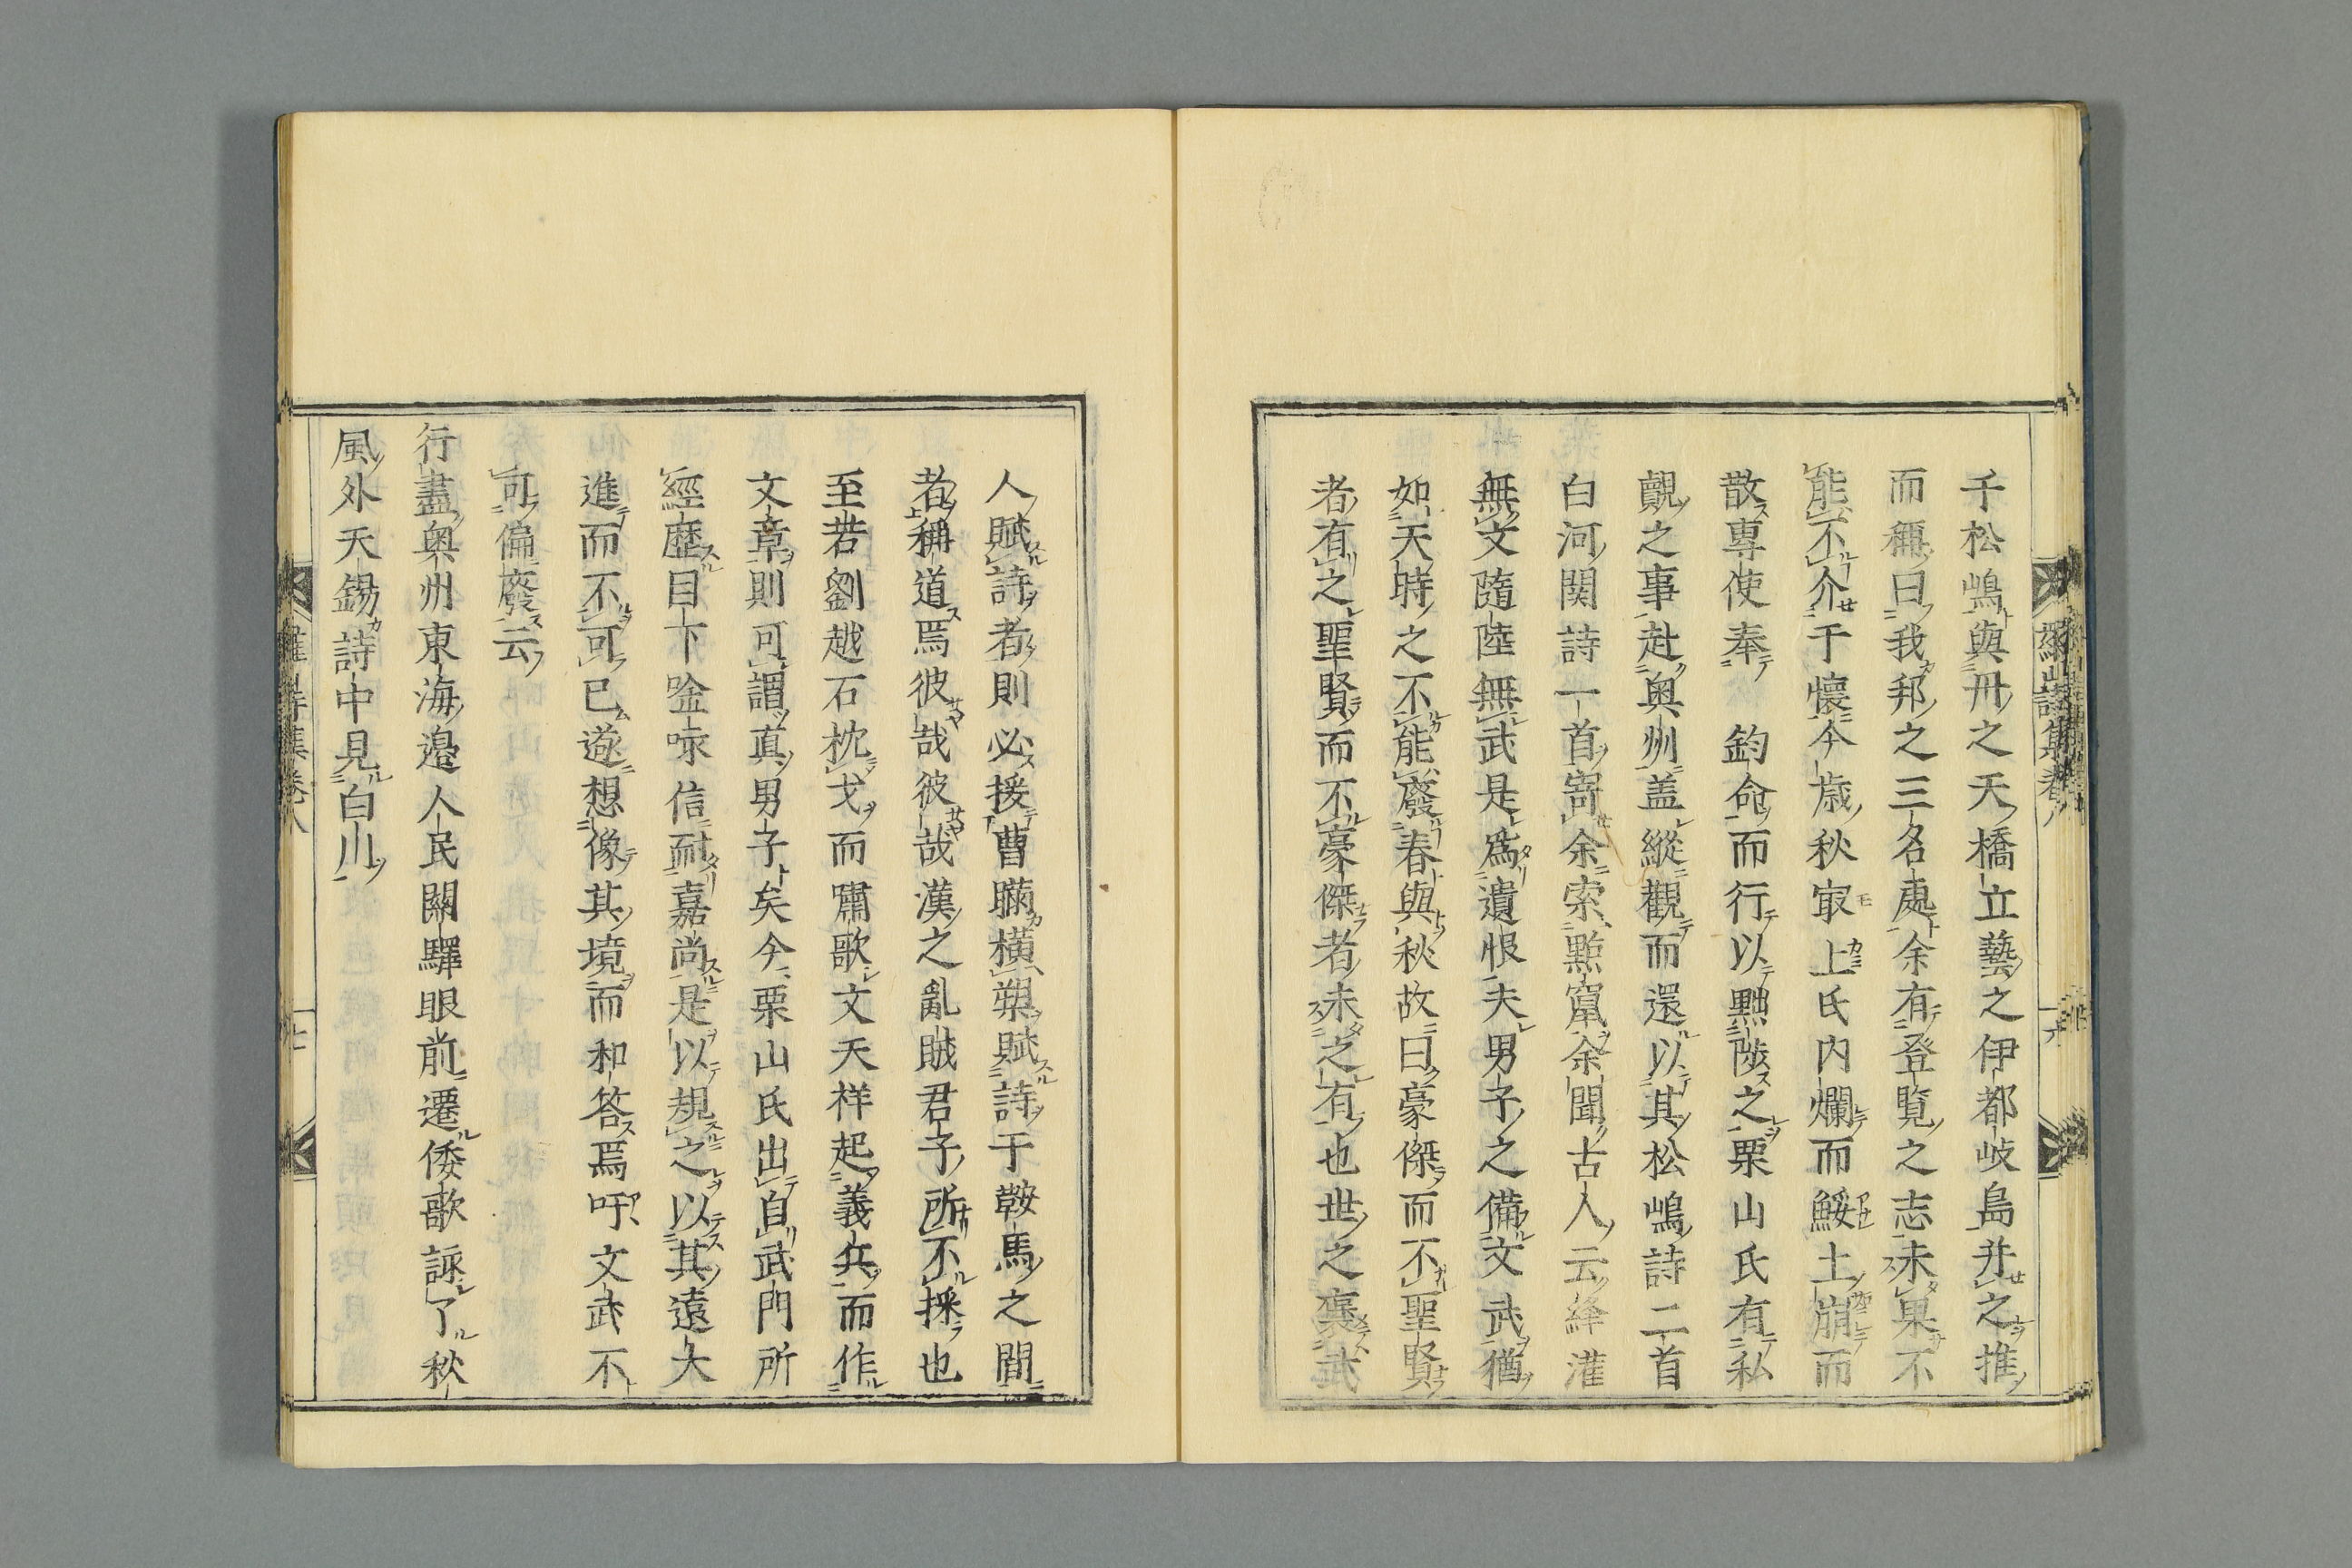 千松嶋與丹之天橋立藝之伊都岐島并之推
而稱曰我邦之三名處余有登覽之志未果不
能不介于懷今歳秋㝡上氏内爛而鮾土崩而
散專使奉 鈞命而行以黜陟之栗山氏有私
覿之事赴奥州盖縱觀而還以其松嶋詩二首
白河関詩一首寄余索點竄余聞古人云絳灌
無文隨陸無武是爲遺恨夫男子之備文武猶
如天時之不能廢春與秋故曰豪傑而不聖賢
者有之聖賢而不豪傑者未之有也世之裹武
人賦詩者則必援曹瞞横槊賦詩于鞍馬之間
者稱道焉彼哉彼哉漢之亂賊君子所不採也
至若劉越石枕戈而嘯歌文天祥起義兵而作
文章則可謂眞男子矣今栗山氏出自武門所
經歴目下唫咏信耐嘉尚是以規之以其遠大
進而不可已遂想像其境而和答焉吁文武不
可偏廢云
行盡奥州東海邉人民關驛眼前遷倭歌詠了秋
風外天錫詩中見白川